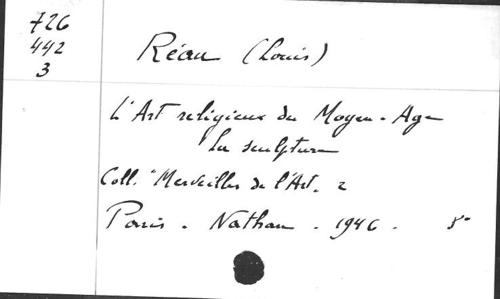 726
442
3
Réau (Louis)
L'Art religieux du Moyen-Age
La sculpture
Coll. "Merveilles de l'Art. 2
Paris. Nathan. 1946. 8°